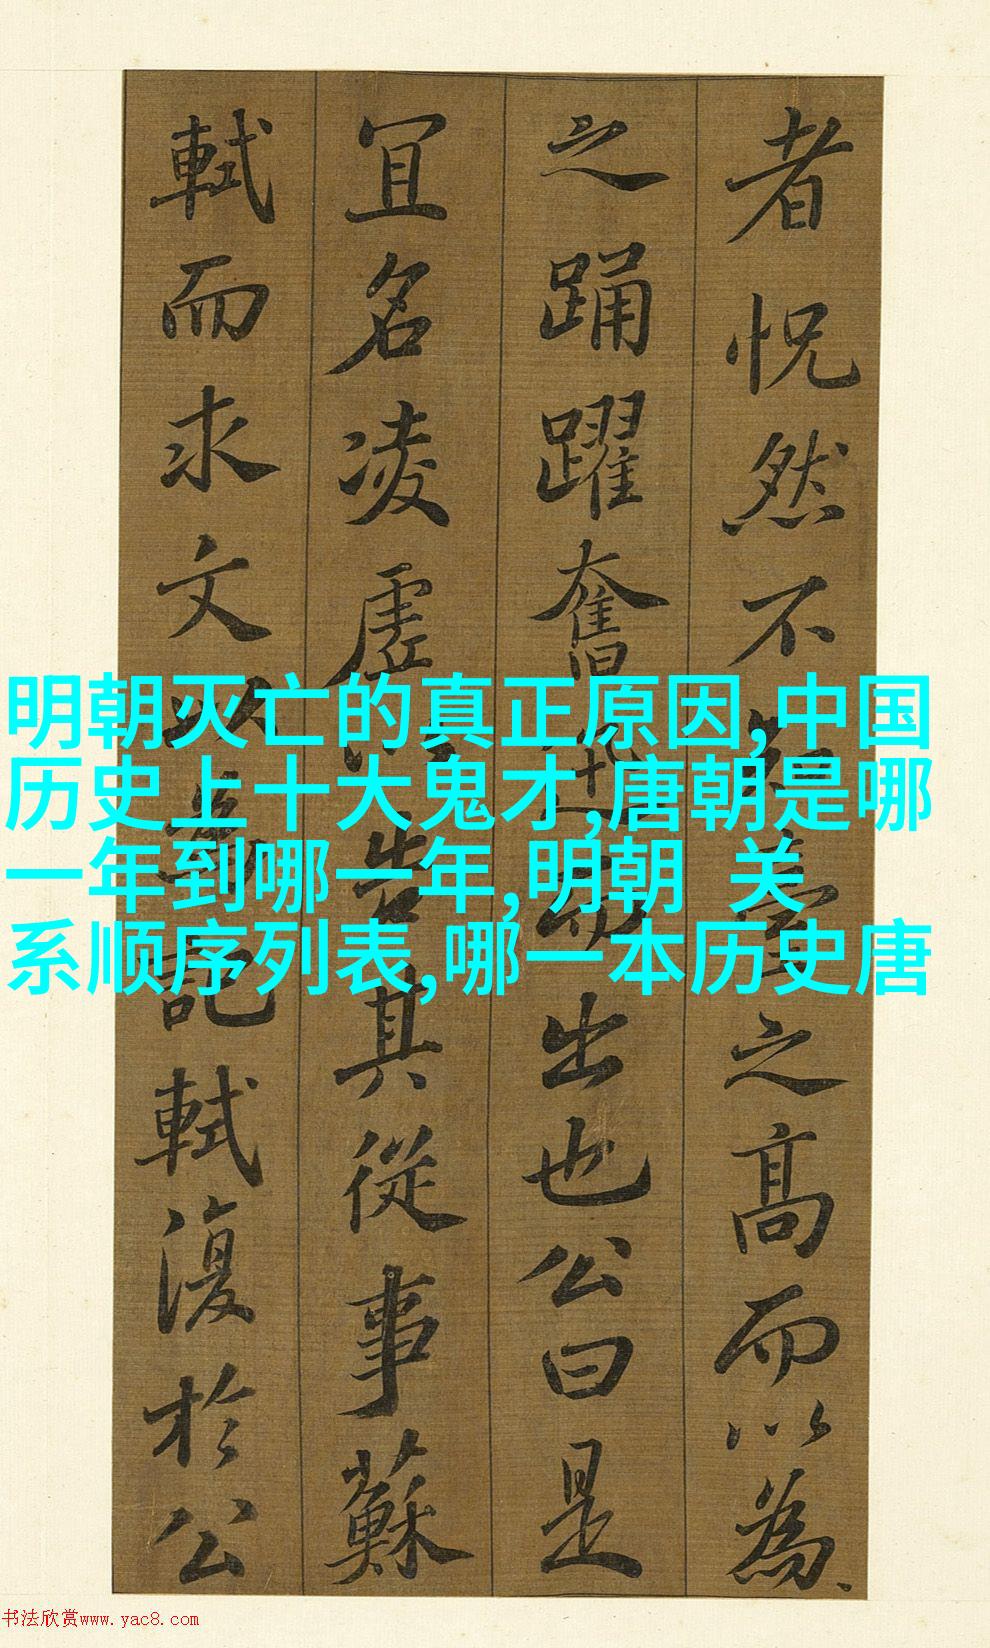 者怳然不知臺之高而以為
之踊躍奮迅而出也公曰是
宜名凌虛以告其從事蘇
軾而求文以為記軾復於公
明朝灭亡的真正原因,中国
历史上十大鬼才,唐朝是哪
一年到哪一年,明朝 关
系顺序列表,哪一本历史唐
书法欣赏www.yac8.com